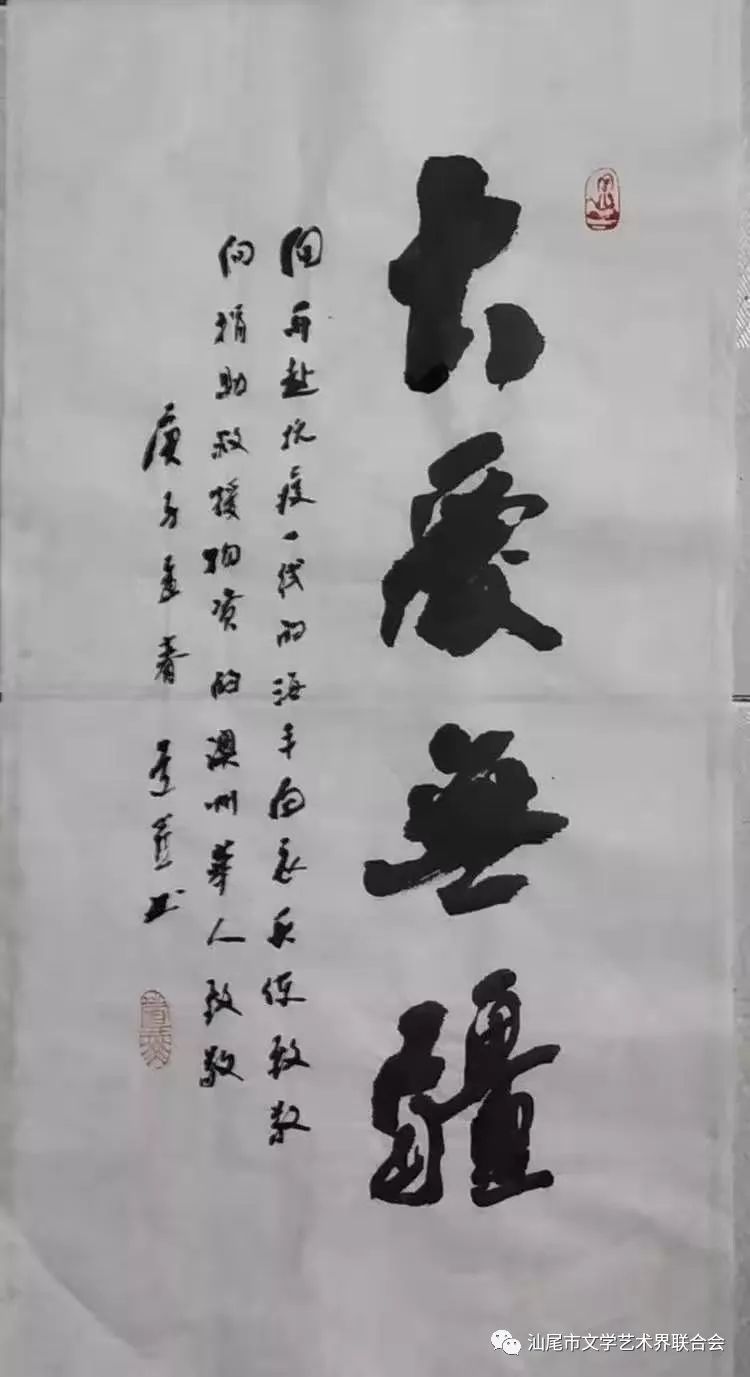 大爱無疆
向再赴抗疫一线的海丰白衣兵傢致敬
向捐助救援物资的澳洲华人致敬
庚子孟春 书
汕尾市文学艺术界联合会